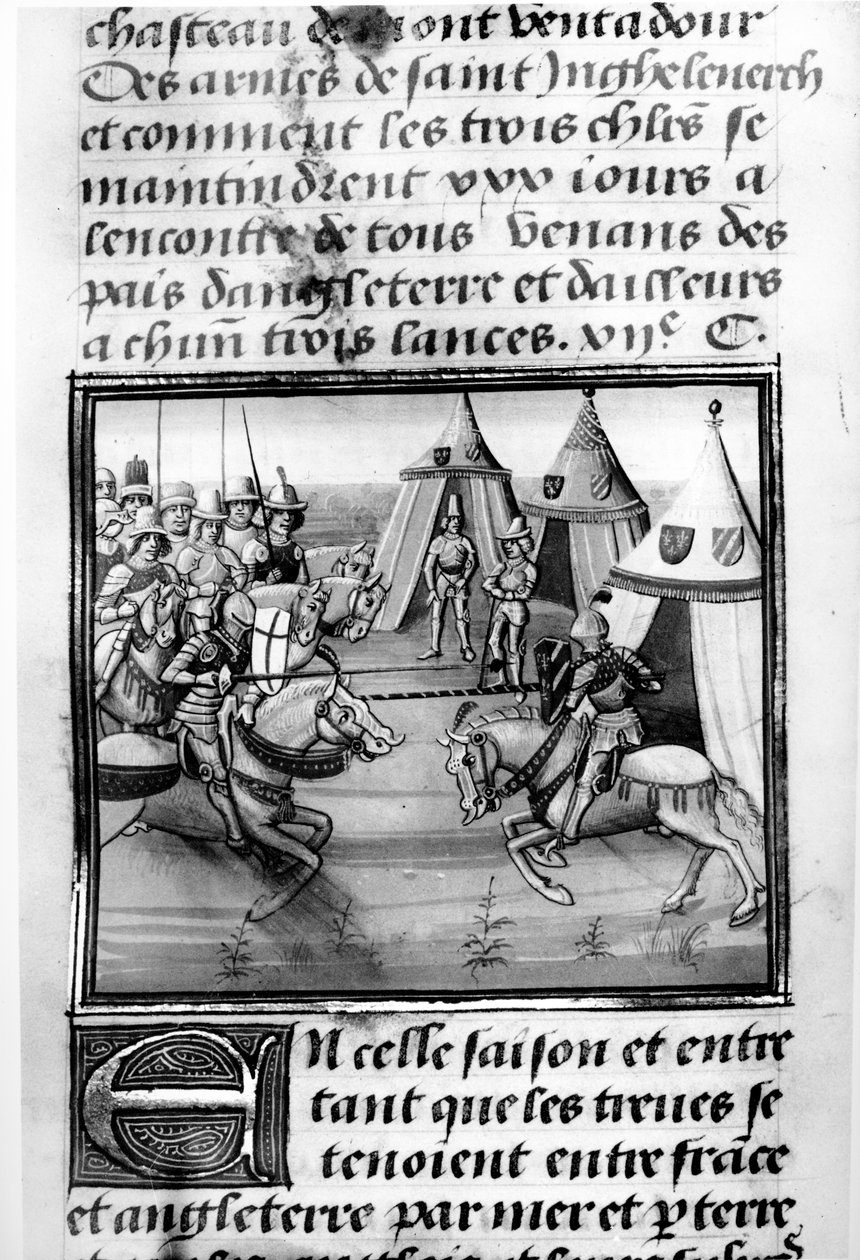 chasteau de mont ventadour
Des armes de saint Jnghelenerch
et comment les trois chlrs̄ se
maintindrent xxx iours a
lencontre de tous venans des
païs dangleterre et dailleurs
a chūn trois lances. xijᶜ C.
EN celle saison et entre
tant que les treues se
tenoient entre frāce
et angleterre par mer et ꝑ terre